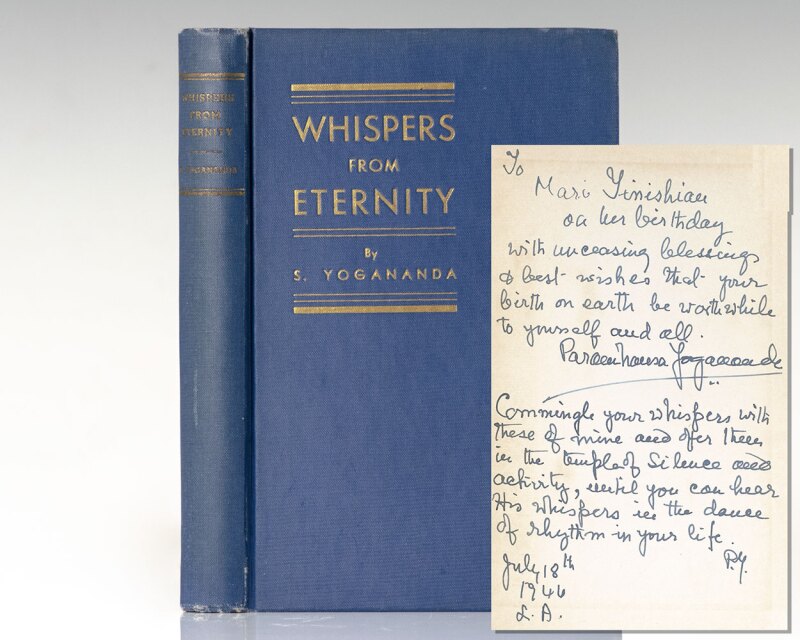 WHISPERS
FROM
ETERNITY
S. YOGANANDA
WHISPERS
FROM
ETERNITY
By
S. YOGANANDA
To
Mari Tinishian
on her birthday
with unceasing blessings
& best wishes that your
birth on earth be worthwhile
to yourself and all.
Paramhansa Yogananda
Commingle your whispers with
these of mine and ofer them
in the temple of Silence and
activity, until you can hear
His whispers in the dance
of rhythm in your life.
P.Y.
July 18th
1946
L.A.